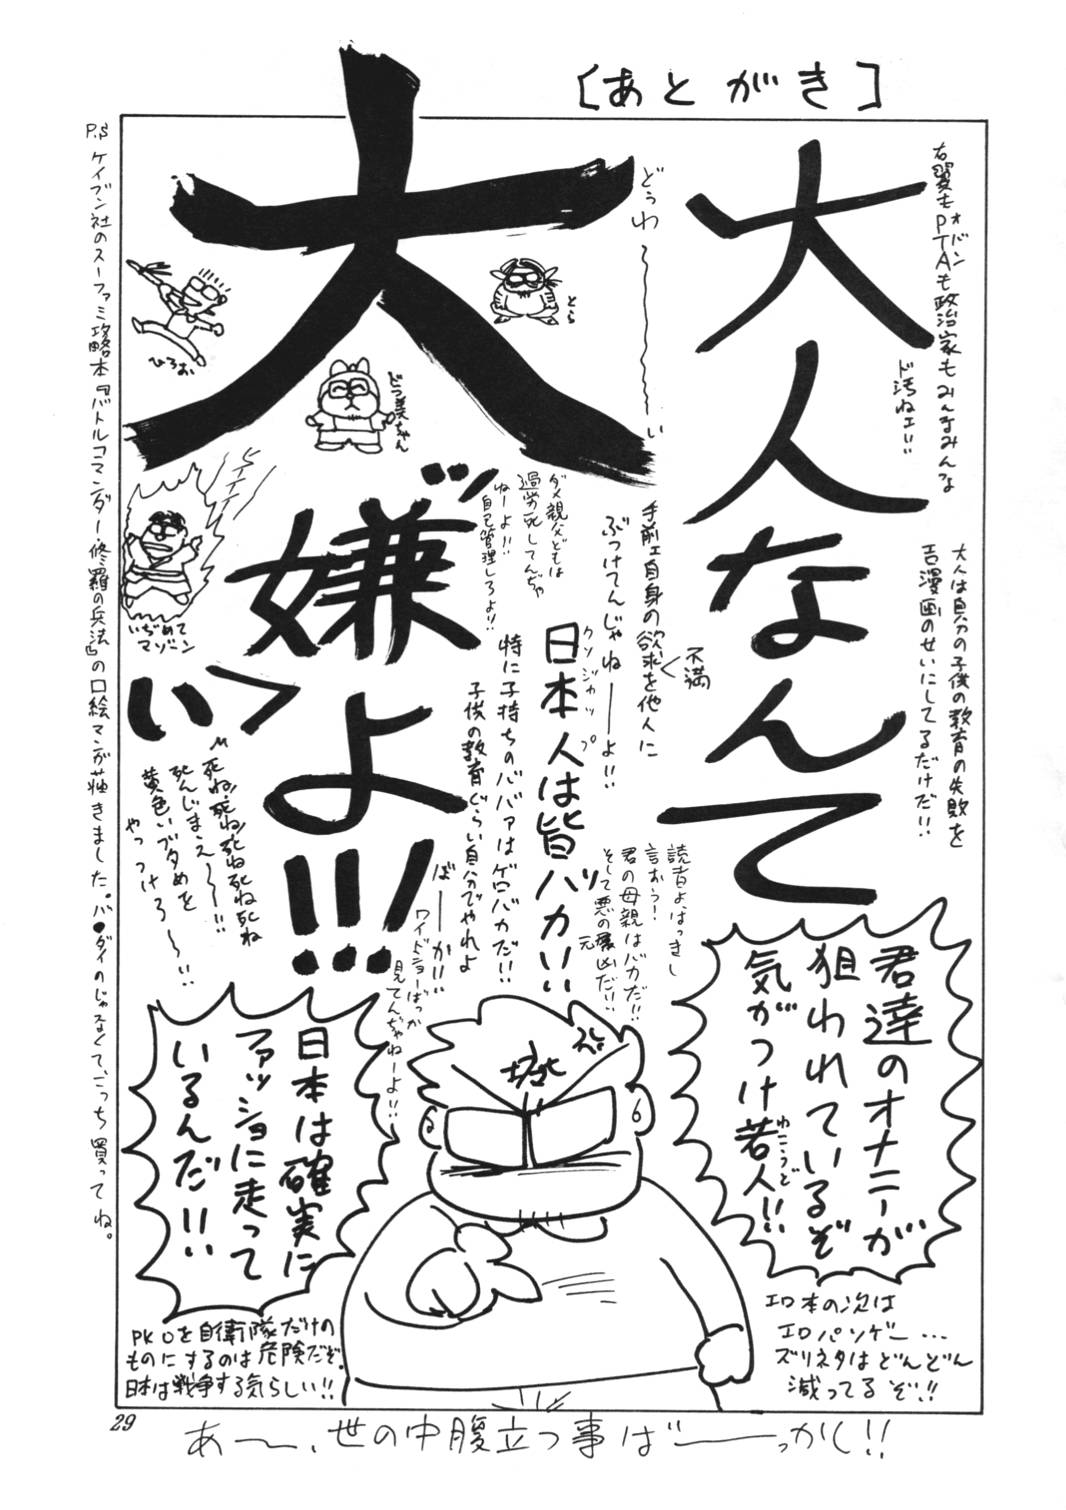 [あとがき]
大人なんて
大ッ嫌いっよ!!!
右翼もPTAも政治家もみんなみんな
オバン
ド汚ねェ!!
大人は自分の子供の教育の失敗を
エロ漫画のせいにしてるだけだ!!
どぅわ〜〜〜い
手前ェ自身の欲求を他人に
不満
ぶつけてんじゃねーーよ!!
日本人は皆バカッ!!
クソジャップ
読者よ、はっきし
言おう!
君の母親はバカだ!!
そして悪の元凶だ!!
ダメ親父どもは
過労死してんぢゃ
ねーよ!!
自己管理しろよ!!
特に子持ちのババァはゲロバカだ!!
子供の教育ぐらい自分でやれよ
ばーーか!!
ワイドショーばっか
見てんぢゃねーよ!!
とら
どつ美ちゃん
ひろお
いぢめて
マゾーン
死ね死ね死ね死ね死ね
死んじまえ〜〜!!
黄色いブタめを
やっつけろ〜〜!!
君達のオナニーが
狙われているぞ
気がつけ若人!!
わこうど
日本は確実に
ファッショに走って
いるんだ!!
エロ本の次は
エロパソゲー…
ズリネタはどんどん
減ってるぞ!!
PKOを自衛隊だけの
ものにするのは危険だぞ。
日本は戦争する気らしい!!
P.S ケイブン社のスーファミ攻略本『バトルコマンダー・修羅の兵法』の口絵マンガ描きました。バ●ダイのじゃなくて、こっち買ってね。
29
あーー、世の中腹立つ事ばーーっかし!!